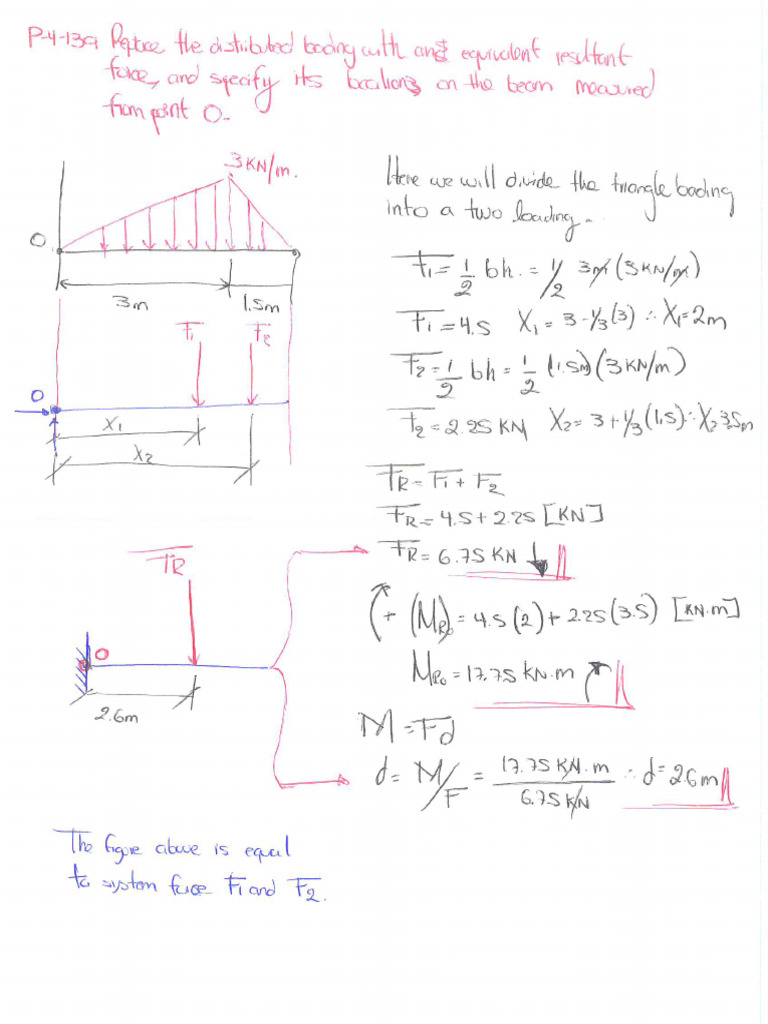 P-4-139 Replace the distributed loading with an equivalent resultant
force, and specify its location on the beam measured
from point O.
3 KN/m.
O.
3m
1.5m
F1
F2
O
X1
X2
Here we will divide the triangle loading
into a two loading.
F1 = 1/2 bh. = 1/2 3m (3KN/m)
F1 = 4.5 X1 = 3 - 1/3(3) ∴ X1 = 2m
F2 = 1/2 bh = 1/2 (1.5m)(3KN/m)
F2 = 2.25 KN X2 = 3 + 1/3(1,5) ∴ X2 3.5m
FR = F1 + F2
FR = 4.5 + 2.25 [KN]
FR = 6.75 KN ↓
+ (MRo) = 4.5(2) + 2.25(3.5) [KN.m]
MRo = 17.75 KN.m
FR
O
2.6m
M = Fd
d = M/F = 17.75 KN.m / 6.75 KN ∴ d = 2.6m
The figure above is equal
to system force F1 and F2.